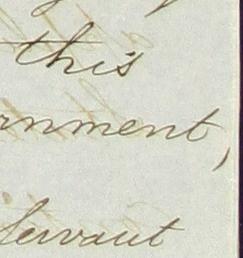 this
rnment,
Servant